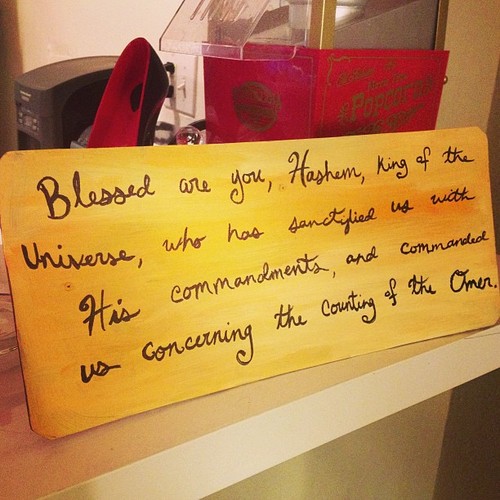 Blessed are you, Hashem, King of the
Universe, who has sanctified us with
His commandments, and commanded
us concerning the Counting of the Omer.
POPCORN